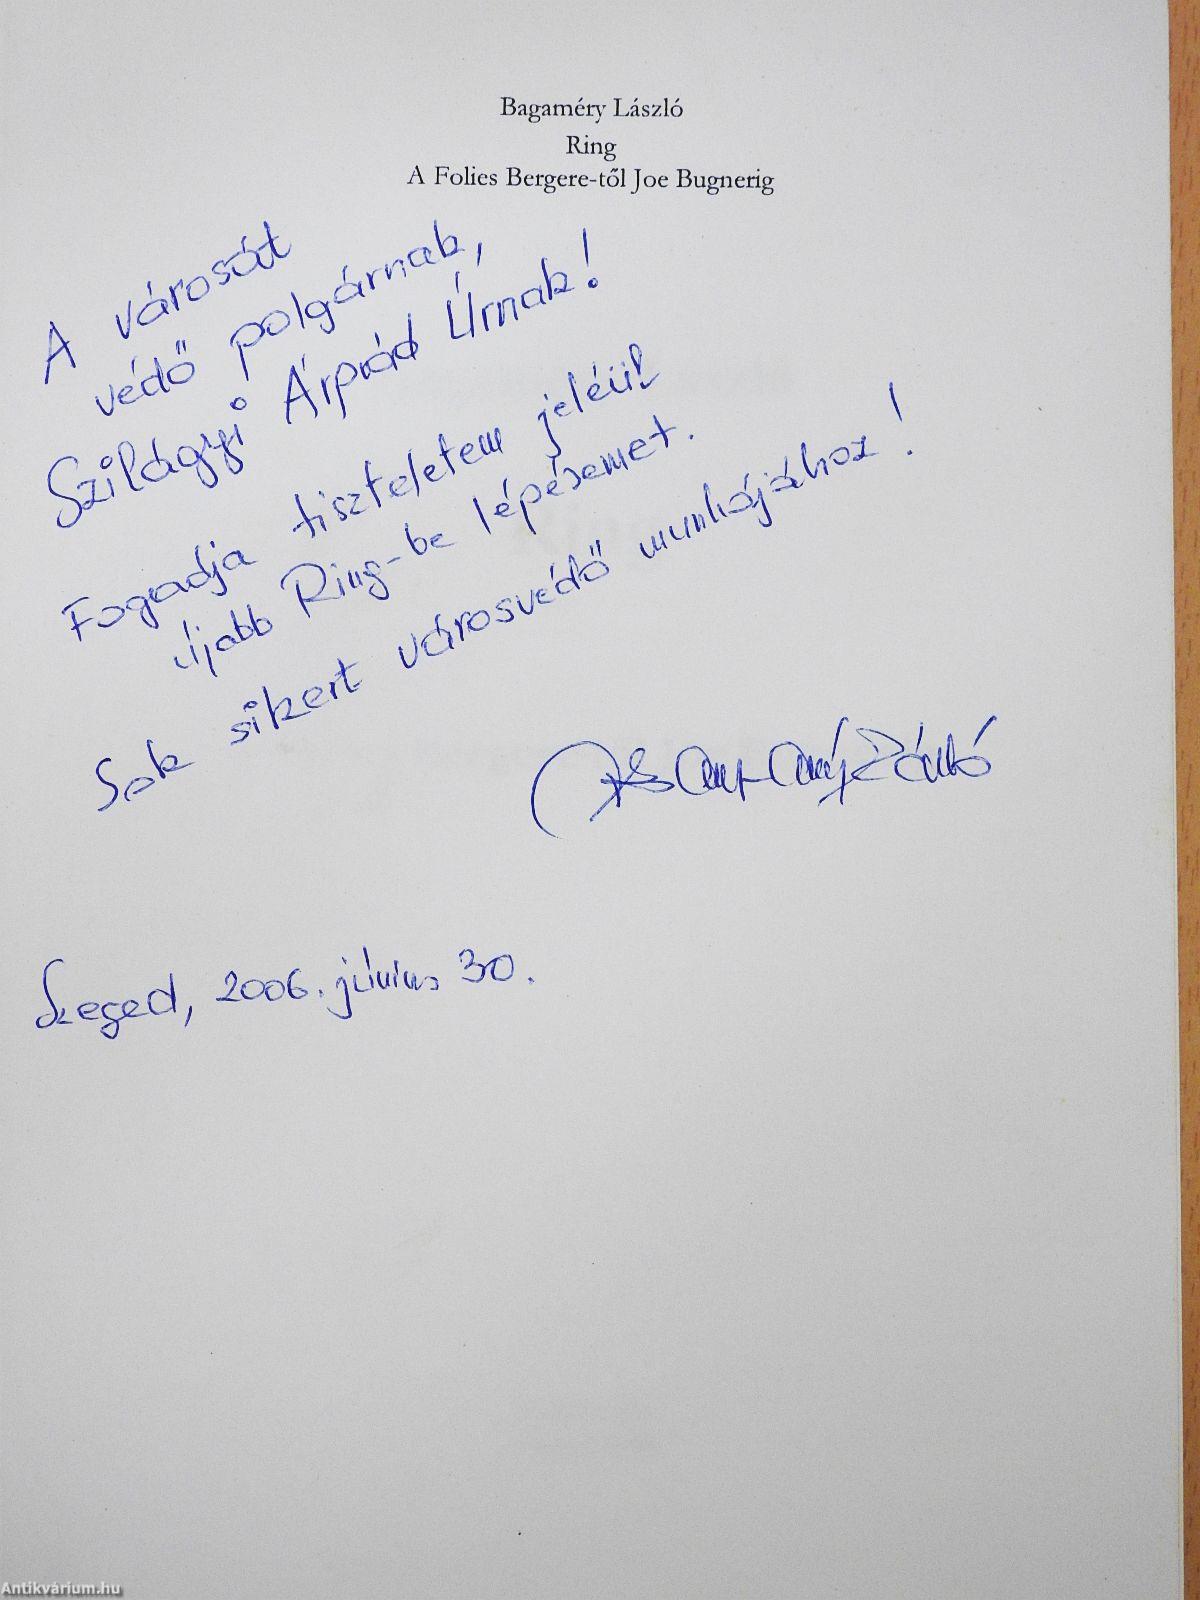 Bagaméry László
Ring
A Folies Bergere-től Joe Bugnerig
A városát
védő polgárnak,
Szilágyi Árpád Úrnak!
Fogadja tiszteletem jeléül
újabb Ring-be lépésemet.
Sok sikert városvédő munkájához!
Szeged, 2006. június 30.
Antikvárium.hu